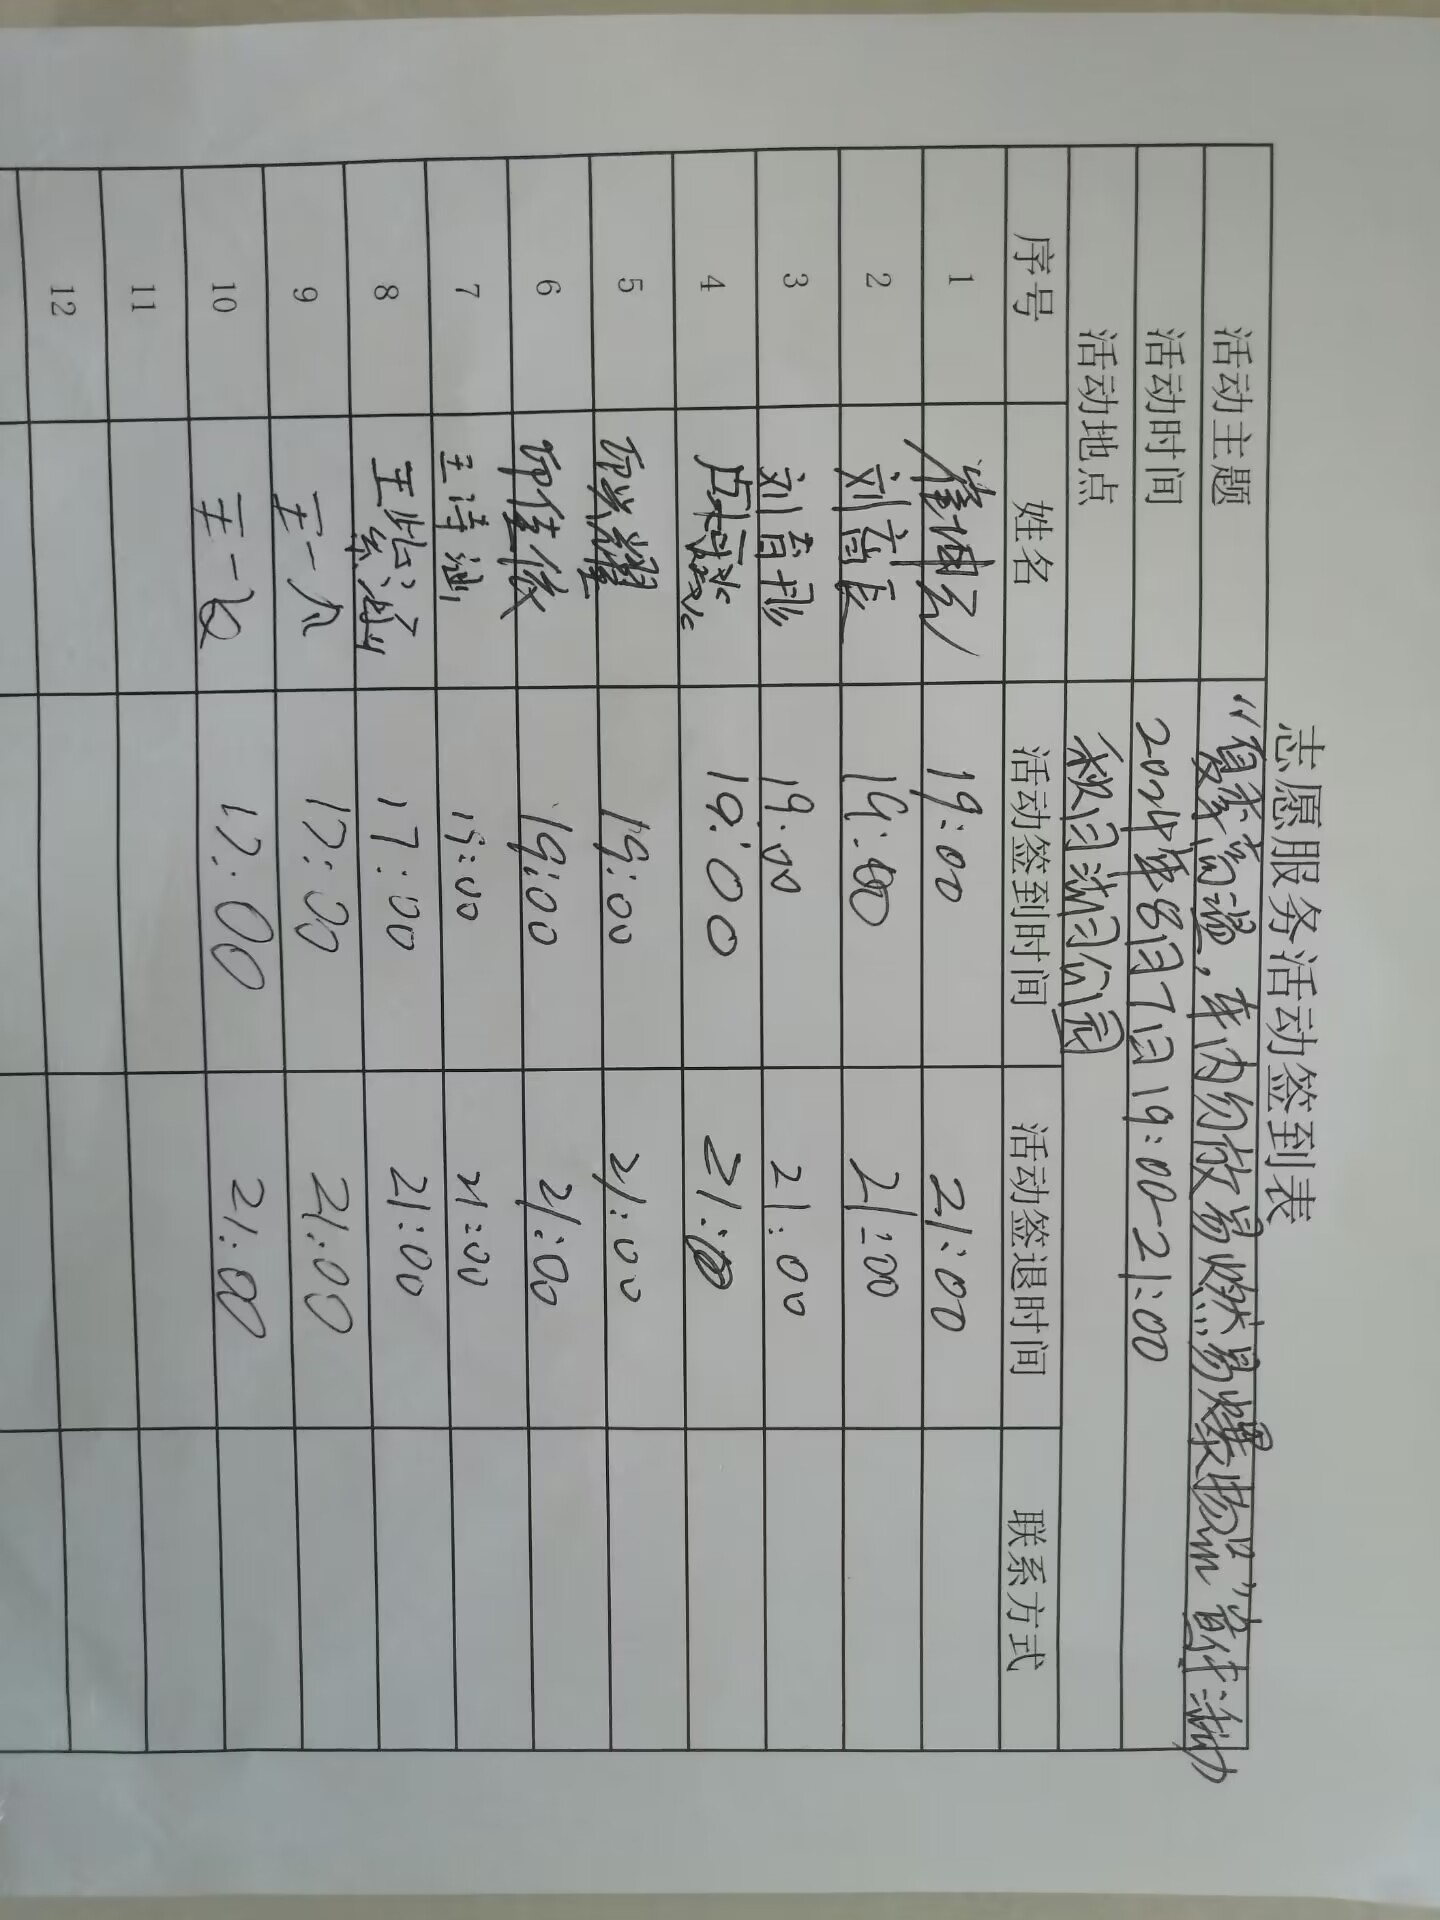 志愿服务活动签到表
活动主题 "夏季高温,车内勿放易燃易爆物品"宣传活动
活动时间 2024年8月7日19:00-21:00
活动地点 秋月湖公园
序号 姓名 活动签到时间 活动签退时间 联系方式
1 19:00 21:00
2 刘 19:00 21:00
3 刘 19:00 21:00
4 19:00 21:00
5 19:00 21:00
6 19:00 21:00
7 王诗涵 19:00 21:00
8 王 17:00 21:00
9 王一 17:00 21:00
10 王一 17:00 21:00
11
12